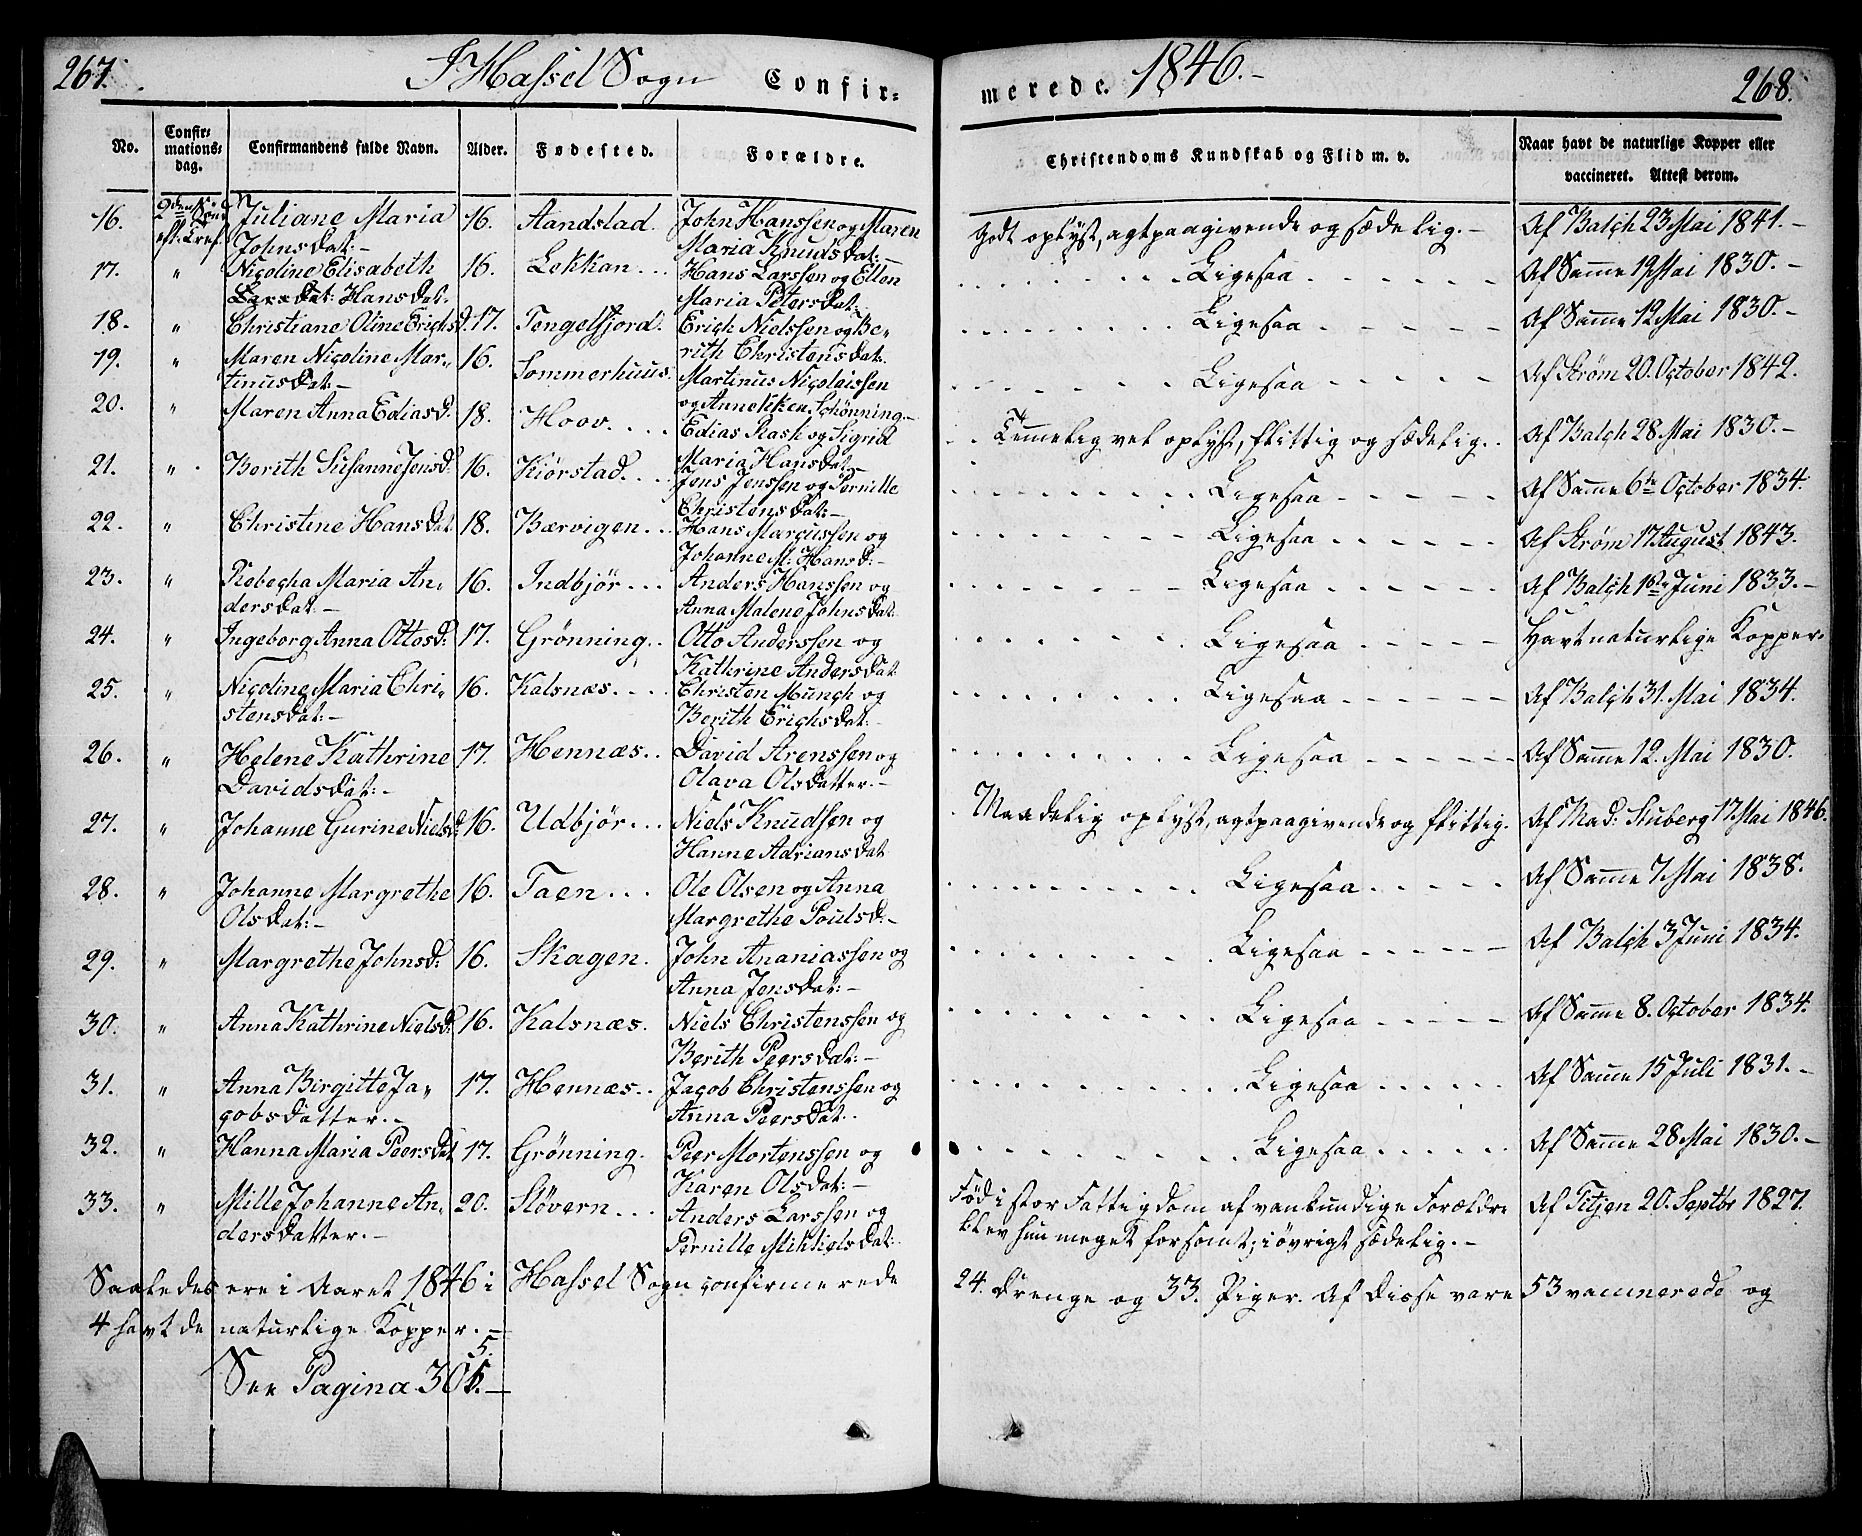 267.
I Hassel Sogn Confir-
merede. 1846.-
268.
No.
Confir-
mations-
dag.
Confirmandens fulde Navn.
Alder.
Fødested.
Forældre.
Christendoms Kundskab og Flid m. v.
Naar havt de naturlige Kopper eller
vaccineret. Attest derom.
16. 2den Sønd: Juliane Maria 16. Aandstad. John Hanssen og Maren Godt oplyst, agtpaagivende og sædelig.- Af Balch 23 Mai 1841.-
eft: Tref. Johnsdat:- Maria Knudsdat:-
17. " Nicoline Elisabeth 16. Lekkan... Hans Larssen og Ellen Ligesaa Af Samme 19 Mai 1830.-
Larsdat: Hansdat. Maria Petersdat:
18. " Christiane Oline Erichsd. 17. Tengelfjord. Erich Nielssen og Be- Ligesaa Af Samme 12 Mai 1830.-
rith Christensdat:
19. " Maren Nicoline Mar- 16. Sommerhuus. Martinus Nicolaissen Ligesaa Af Strøm 20. October 1842.
tinusdat:- og Annekken Schønning.-
20. " Maren Anna Ediasd: 18. Hoov.... Edias Rask og Sigrid Temmelig vel oplyst, flittig og sædelig. Af Balch 28 Mai 1830.-
Maria Hansdat:-
21. " Berith Susanne Jensd: 16. Kiørstad.... Jens Jenssen og Pernille Ligesaa Af Samme 6te October 1834.
Christensdat:-
22. " Christine Hansdat 18. Bærvigen... Hans Marcussen og Ligesaa Af Strøm 17 August 1843.
Johanne M: Hansd:-
23. " Rebecha Maria An- 16. Indbjör... Anders Hanssen og Ligesaa Af Balch 1ste Juni 1833.-
dersdat:- Anna Malene Johnsdat.
24. " Ingeborg Anna Ottosd: 17. Grönning.. Otto Anderssen og Ligesaa Havt naturlige Kopper.
Kathrine Andersdat
25. " Nicoline Maria Chri- 16. Kalsnæs.... Christen Munch og Ligesaa Af Balch 31. Mai 1834.
stensdat:- Berith Erichsdat:-
26. " Helene Kathrine 17. Hennæs.. David Arenssen og Ligesaa Af Samme 12. Mai 1830.
Davidsdat:- Olava Olsdatter.-
27. " Johanne Gurine Nielsd: 16. Udbjör... Niels Knudsen og Maadelig oplyst, agtpaagivende og flittig. Af Mad: Stuberg 17 Mai 1846.
Hanne Adriansdat
28. " Johanne Margrethe 16. Taen... Ole Olsen og Anna Ligesaa Af Samme 7 Mai 1838.
Olsdat:- Margrethe Poulsd:-
29. " Margrethe Johnsd: 16. Skagen. John Ananiassen og Ligesaa Af Balch 3 Juni 1834.
Anna Jensdat:-
30. " Anna Kathrine Nielsd: 16. Kalsnæs. Niels Christenssen og Ligesaa Af Samme 8. October 1834.
Berith Peersdat:-
31. " Anna Birgitte Ja- 17. Hennæs.. Jacob Christenssen og Ligesaa Af Samme 15 Juli 1831.-
cobsdatter.- Anna Peersdat.
32. " Hanna Maria Peersdat 17. Grönning. Peer Mortenssen og Ligesaa Af Samme 28 Mai 1830.-
Karen Olsdat:-
33. " Mille Johanne An- 20. Støvern... Anders Larssen og Fød i stor Fattigdom af vankundige Forældre Af Titjen 20. Septbr 1827.
dersdatter.- Pernille Mikkelsdat: blev hun meget forsømt; i øvrigt sædelig.-
Saaledes ere i Aaret 1846 i Hassel Sogn confirmerede 24. Drenge og 33. Piger. Af disse vare 53 vaccinerede og
4 havt de naturlige Kopper.-
See Pagina 305.-